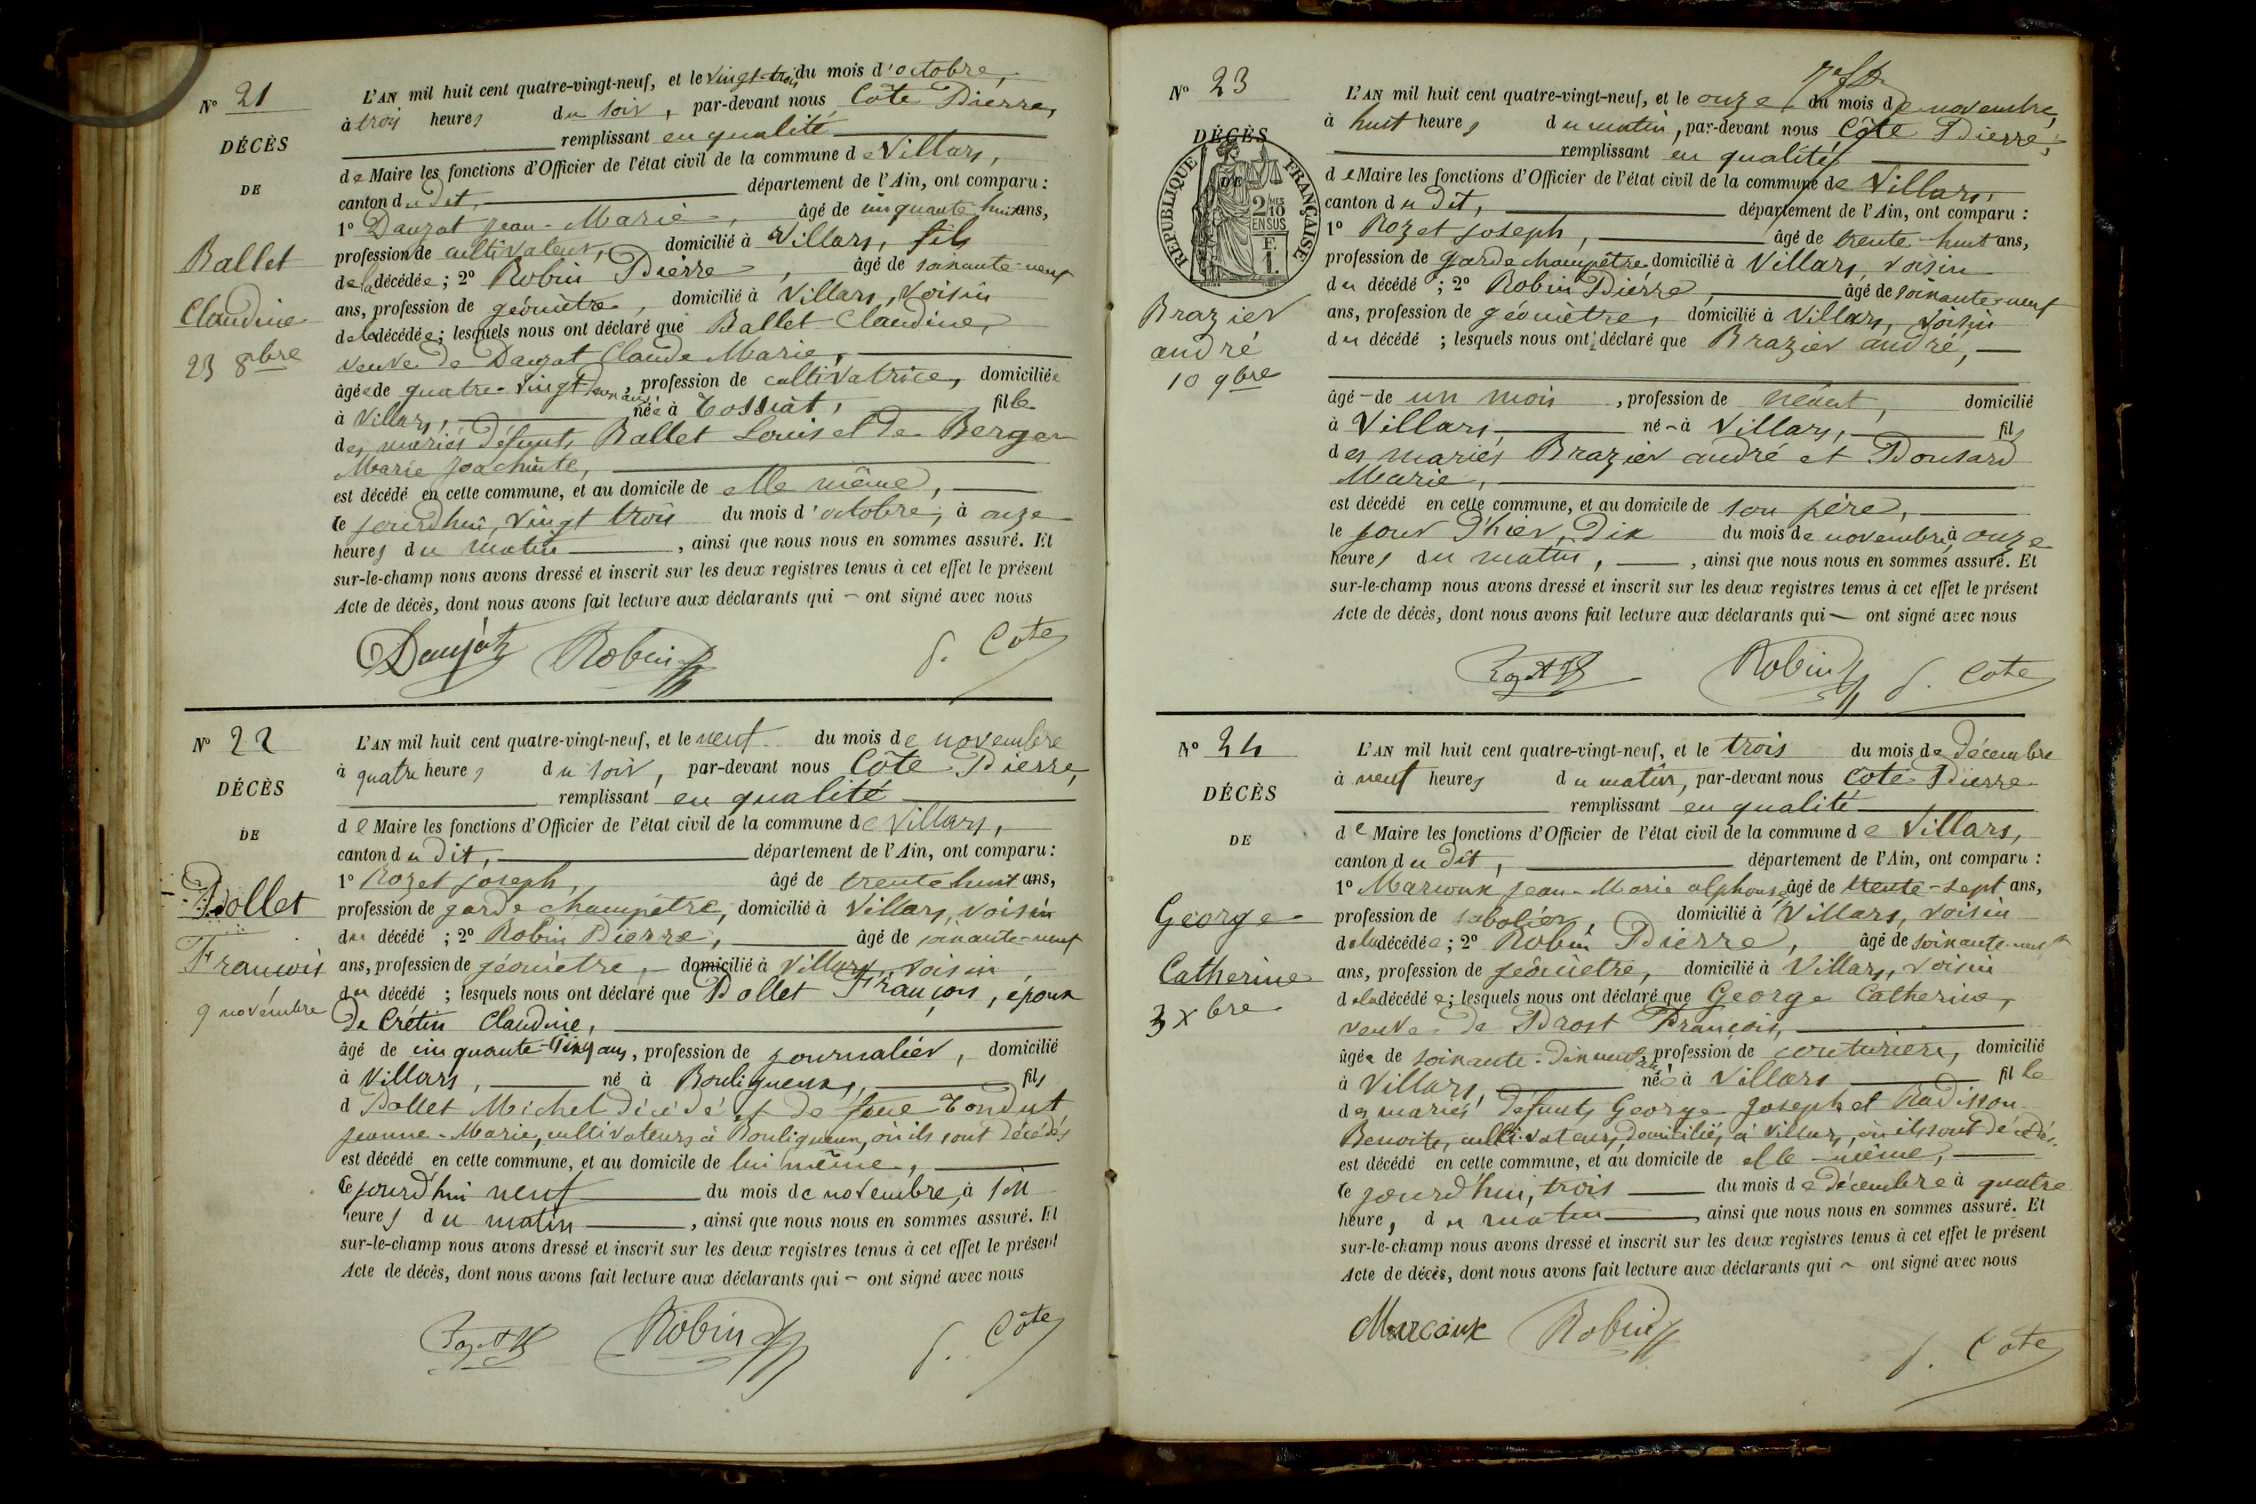 N° 21
DÉCÈS
DE
Ballet
Claudine
23 8bre
L'AN mil huit cent quatre-vingt-neuf, et le vingt-trois du mois d'octobre,
à trois heures du soir, par-devant nous Côte Pierre,
remplissant en qualité
de Maire les fonctions d'Officier de l'état civil de la commune de Villars,
canton du dit, département de l'Ain, ont comparu :
1° Dauzat jean-Marie, âgé de cinquante huit ans,
profession de cultivateur, domicilié à Villars, fils
de la décédée ; 2° Robin Pierre, âgé de soixante-neuf
ans, profession de géomètre, domicilié à Villars, voisin
de la décédée ; lesquels nous ont déclaré que Ballet Claudine,
veuve de Dauzat Claude Marie,
âgée de quatre-vingt- ans, profession de cultivatrice, domiciliée
à Villars, née à Tossiat, fille
des mariés défunts Ballet Louis et de Berger
Marie joachinte,
est décédé en cette commune, et au domicile de elle même,
le jourd'hui, vingt trois du mois d'octobre, à onze
heures du matin, ainsi que nous nous en sommes assuré. Et
sur-le-champ nous avons dressé et inscrit sur les deux registres tenus à cet effet le présent
Acte de décès, dont nous avons fait lecture aux déclarants qui – ont signé avec nous
Daujat Robin P. Côte
N° 22
DÉCÈS
DE
Pollet
François
9 novembre
L'AN mil huit cent quatre-vingt-neuf, et le neuf du mois de novembre
à quatre heures du soir, par-devant nous Côte Pierre,
remplissant en qualité
de Maire les fonctions d'Officier de l'état civil de la commune de Villars,
canton du dit, département de l'Ain, ont comparu :
1° Rozet joseph, âgé de trente huit ans,
profession de garde champêtre, domicilié à Villars, voisin
du décédé ; 2° Robin Pierre, âgé de soixante-neuf
ans, profession de géomètre, domicilié à Villars, voisin
du décédé ; lesquels nous ont déclaré que Pollet François, époux
de Crétin Claudine,
âgé de cinquante-cinq ans, profession de journalier, domicilié
à Villars, né à Bouligneux, fils
d Pollet Michel décédé et de feue Tondut
jeanne-Marie, cultivateurs à Bouligneux, où ils sont décédés
est décédé en cette commune, et au domicile de lui même,
le jourd'hui neuf du mois de novembre, à
heures du matin, ainsi que nous nous en sommes assuré. Et
sur-le-champ nous avons dressé et inscrit sur les deux registres tenus à cet effet le présent
Acte de décès, dont nous avons fait lecture aux déclarants qui – ont signé avec nous
Rozet Robin P. Côte
N° 23
DÉCÈS
DE
RÉPUBLIQUE FRANÇAISE
2/10 EN SUS
F. 1.
Brazier
andré
10 9bre
L'AN mil huit cent quatre-vingt-neuf, et le onze du mois de novembre,
à huit heures du matin, par-devant nous Côte Pierre,
remplissant en qualité
de Maire les fonctions d'Officier de l'état civil de la commune de Villars,
canton du dit, département de l'Ain, ont comparu :
1° Rozet joseph, âgé de trente-huit ans,
profession de garde champêtre domicilié à Villars, voisin
du décédé ; 2° Robin Pierre, âgé de soixante-neuf
ans, profession de géomètre, domicilié à Villars, voisin
du décédé ; lesquels nous ont déclaré que Brazier andré,
âgé – de un mois, profession de néant, domicilié
à Villars, né – à Villars, fils
des mariés Brazier andré et Ponsard
Marie,
est décédé en cette commune, et au domicile de son père,
le jour d'hier, dix du mois de novembre, à onze
heures du matin, ainsi que nous nous en sommes assuré. Et
sur-le-champ nous avons dressé et inscrit sur les deux registres tenus à cet effet le présent
Acte de décès, dont nous avons fait lecture aux déclarants qui – ont signé avec nous
Rozet Robin P. Cote
N° 24
DÉCÈS
DE
George
Catherine
3 Xbre
L'AN mil huit cent quatre-vingt-neuf, et le trois du mois de décembre
à neuf heures du matin, par-devant nous Cote Pierre
remplissant en qualité
de Maire les fonctions d'Officier de l'état civil de la commune de Villars,
canton du dit, département de l'Ain, ont comparu :
1° Marcoux jean-Marie alphonse, âgé de trente-sept ans,
profession de sabotier, domicilié à Villars, voisin
de la décédée ; 2° Robin Pierre, âgé de soixante-neuf
ans, profession de géomètre, domicilié à Villars, voisin
de la décédée ; lesquels nous ont déclaré que George Catherine,
veuve de Prost François,
âgée de soixante-dix neuf ans, profession de couturière, domicilié
à Villars, née à Villars fille
des mariés défunts George joseph et Radisson
Benoite, cultivateurs, domiciliés à Villars, où ils sont décédés.
est décédé en cette commune, et au domicile de elle-même,
le jourd'hui, trois du mois de décembre à quatre
heure, du matin, ainsi que nous nous en sommes assuré. Et
sur-le-champ nous avons dressé et inscrit sur les deux registres tenus à cet effet le présent
Acte de décès, dont nous avons fait lecture aux déclarants qui – ont signé avec nous
Marcoux Robin P. Cote